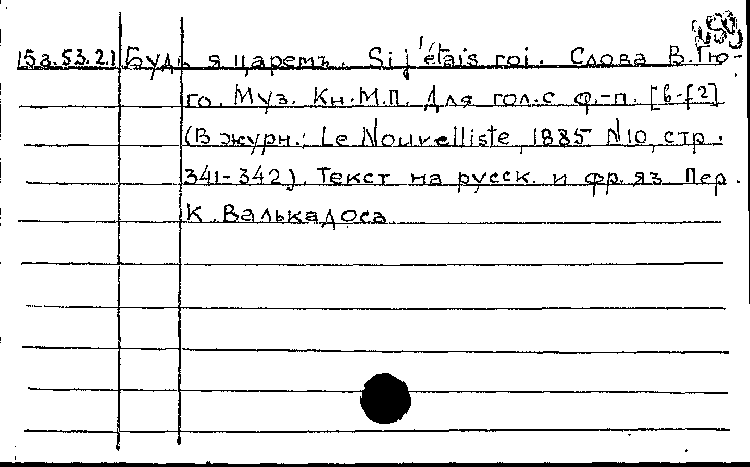 15а.53.2.1 Будь я царемъ. Si j'étais roi. Слова В. Гю-
го. Муз. Кн. М.П. Для гол. с ф.-п. [b-f2]
(В журн.: Le Nouvelliste, 1885 N10, стр.
341-342). Текст на русск. и фр. яз. Пер.
К. Валькадоса